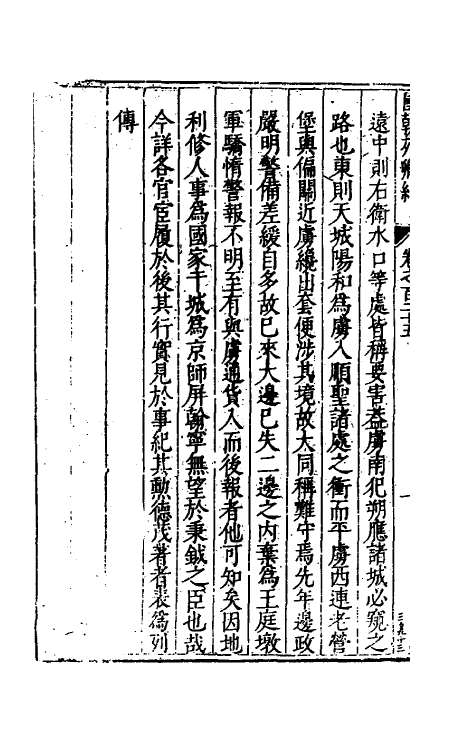 卷之百二十五
遠中則右衛水口等處皆稱要害葢虜南犯朔應諸城必窺之
路也東則天城陽和爲虜入順聖諸處之衝而平虜西連老營
堡與偏關近虜纔出套便涉其境故大同稱難守焉先年邊政
嚴明警備差緩自多故已來大邊已失二邊之內棄爲王庭墩
軍驕惰警報不明至有與虜通貨入而後報者他可知矣因地
利修人事爲國家干城爲京師屏翰寧無望於秉鉞之臣也哉
今詳各官宦履於後其行實見於事紀其勳德茂著者裴爲列
傳